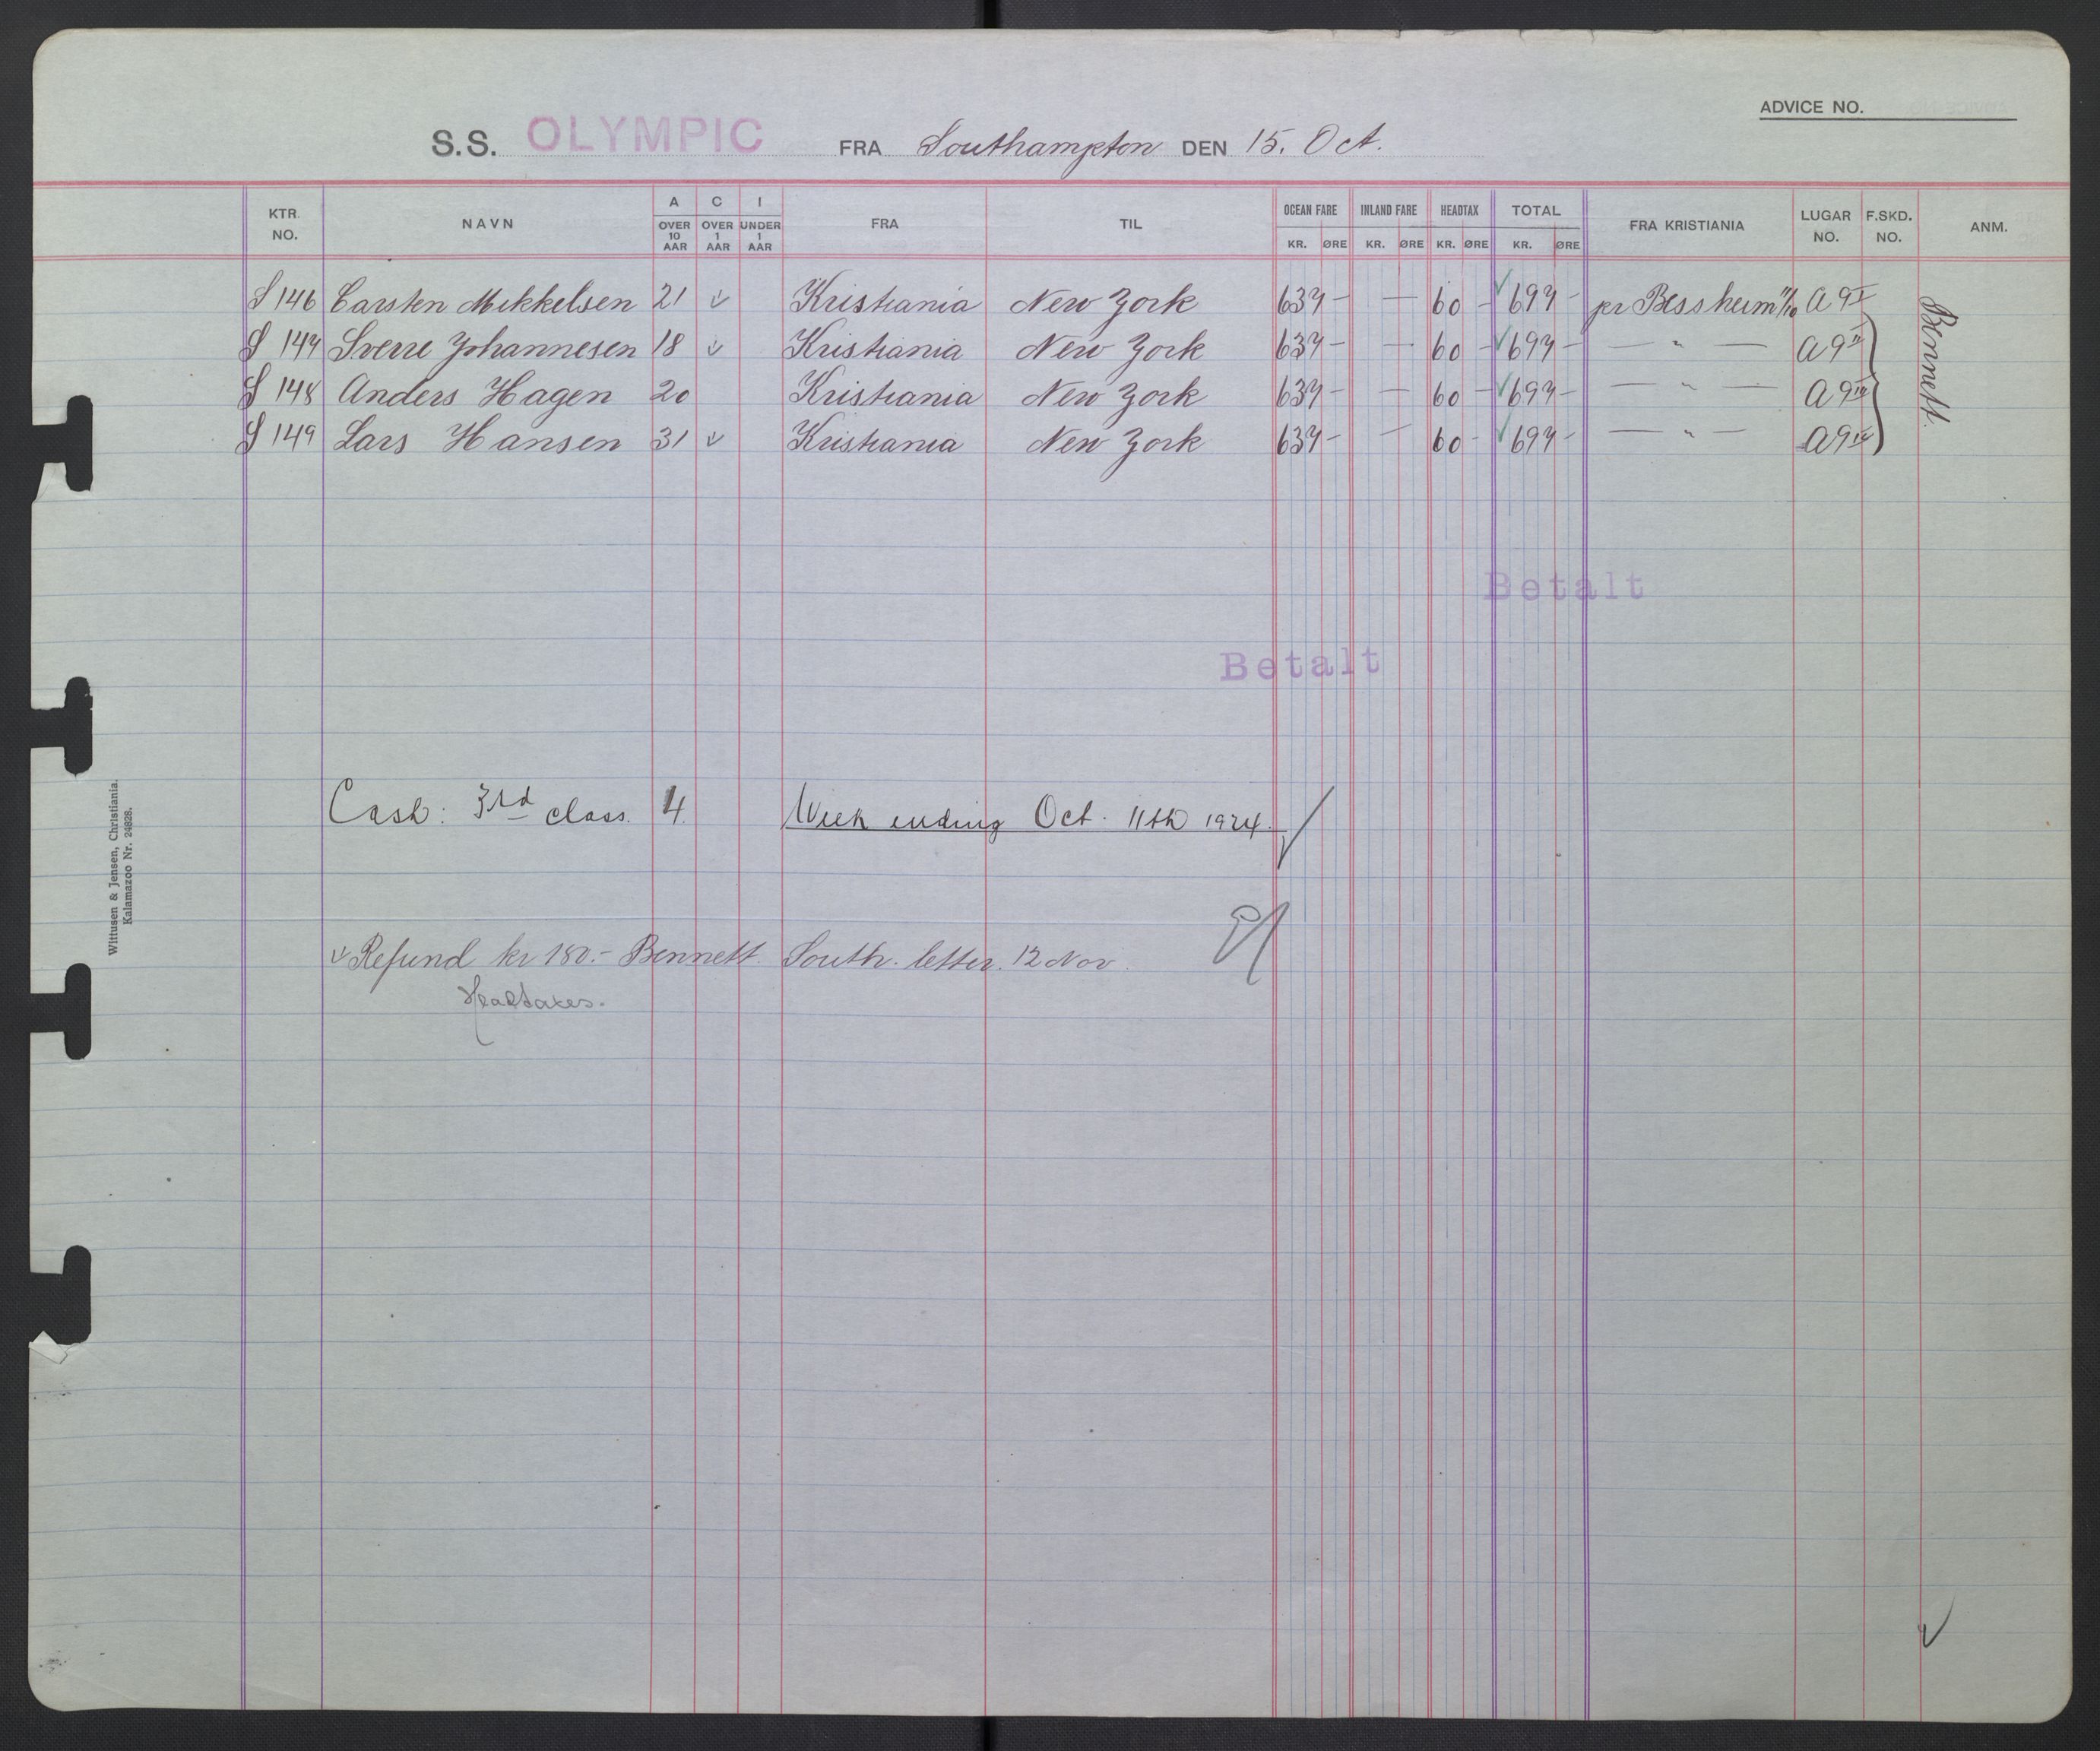 ADVICE NO.
S.S. OLYMPIC FRA Southampton DEN 15. Oct.
KTR. NO. NAVN A OVER 10 AAR C OVER 1 AAR I UNDER 1 AAR FRA TIL OCEAN FARE KR. ØRE INLAND FARE KR. ØRE HEADTAX KR. ØRE TOTAL KR. ØRE FRA KRISTIANIA LUGAR NO. F.SKD. NO. ANM.
S 146 Carsten Mikkelsen 21 Kristiania New York 637 - — 60 - ✓ 697 - pr Bessheim 11/10 A 9 I
S 147 Sverre Johannesen 18 Kristiania New York 637 - — 60 - ✓ 697 - — " — A 9 II
S 148 Anders Hagen 20 Kristiania New York 637 - — 60 - ✓ 697 - — " — A 9 III
S 149 Lars Hansen 31 Kristiania New York 637 - — 60 - ✓ 697 - — " — A 9 IV
Bennett.
Betalt
Betalt
Cash: 3rd class. 4. Week ending Oct. 11th 1924.
Refund kr 180.- Bennett. South. letter. 12 Nov.
Headtaxes.
Wittusen & Jensen, Christiania.
Kalamazoo Nr. 24828.